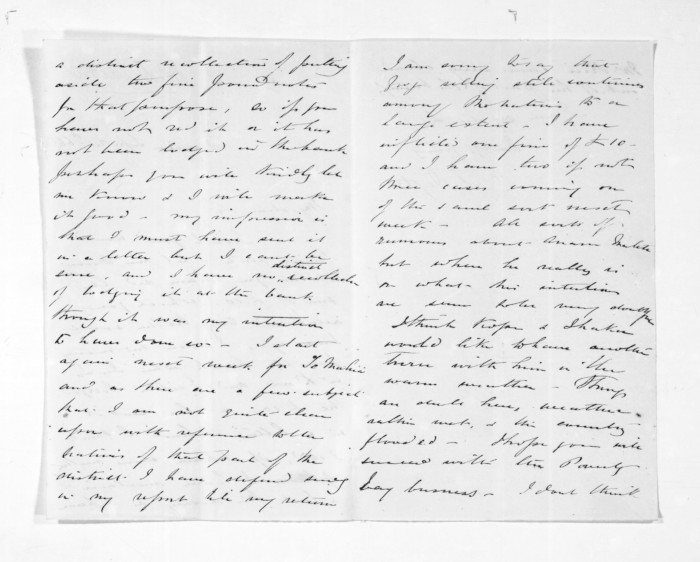 a distinct recollection of putting
aside two five pound notes
for that purpose, so if you
have not recd it or it has
not been lodged in the bank
perhaps you will kindly let
me know & I will make
it good - my impression is
that I must have sent it
in a letter but I cant be
sure, and I have no distinct recollection
of lodging it at the bank
though it was my intention
to have done so - I start
again next week for Te Mahia
and as there are a few subjects
that I am not quite clear
upon with reference to the
natives of that part of the
district I have deferred sending
in my report till my return
I am sorry to say that
grog selling still continues
among the natives to a
large extent - I have
inflicted one fine of £10 -
and I have two if not
three cases coming on
of the same sort next
week - All sorts of
rumours about
but where he really is
or what his intentions
are seem to be very doubtful
I think & 
would like to have another
turn with him in the
warm weather - Things
are dull here, weather
rather wet, & the country
flooded - I hope you will
succeed with the Poverty
Bay business - I dont think